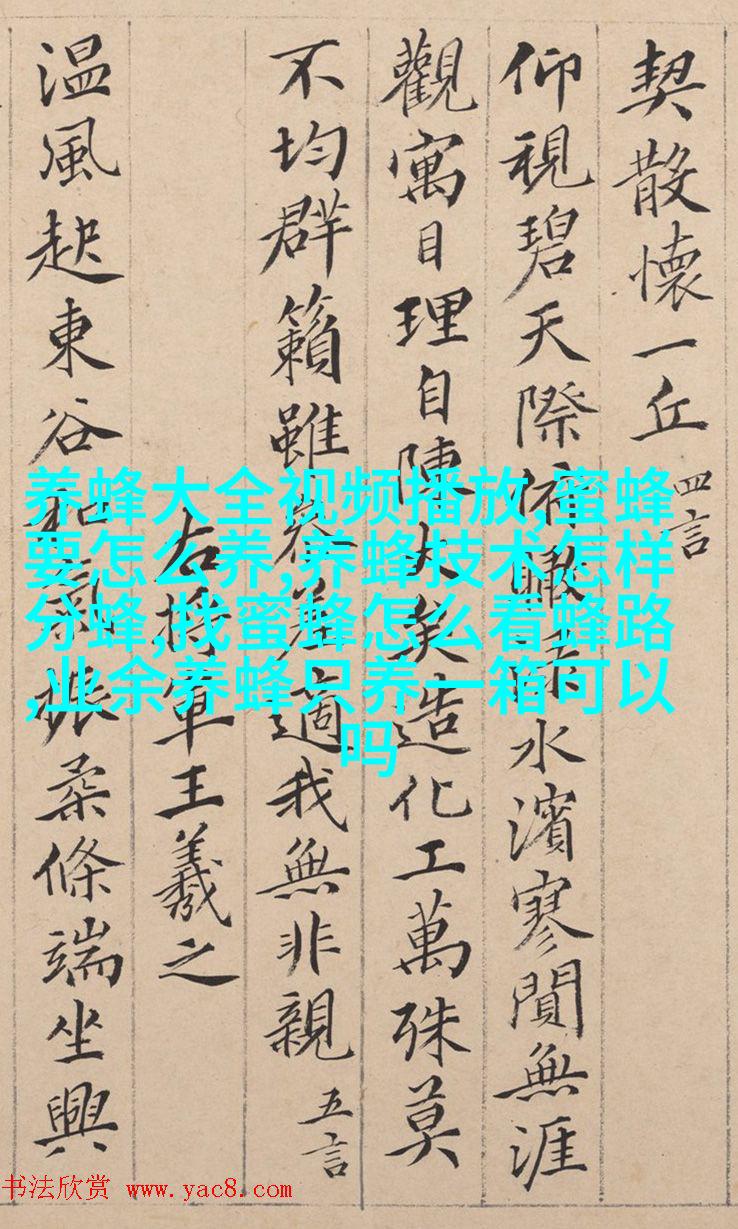 契散懷一丘 四言
仰視碧天際俯瞰水濱寥閴無涯
觀寓目理自陳大矣造化工萬殊莫
不均群籟雖參差適我無非親 五言
右將軍王羲之
温風起東谷和氣振柔條端坐興
养蜂大全视频播放,蜜蜂
要怎么养,养蜂技术怎样
分蜂,找蜜蜂怎么看蜂路
,业余养蜂只养一箱可以
吗
书法欣赏 www.yac8.com